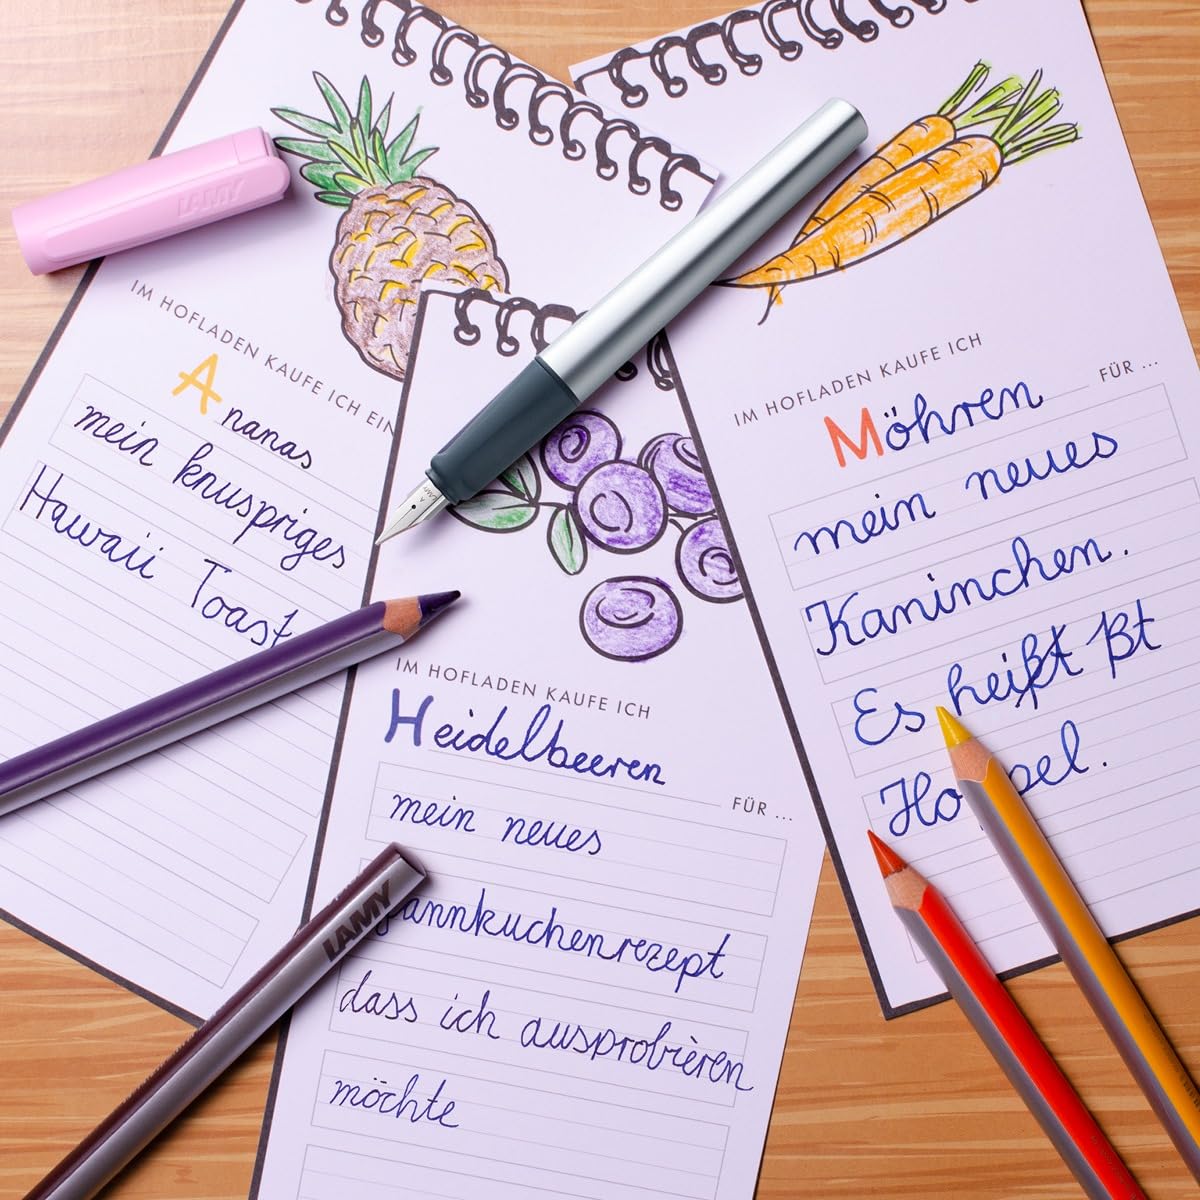 LAMY
IM HOFLADEN KAUFE ICH EIN
Ananas
mein knuspriges
Hawaii Toast
IM HOFLADEN KAUFE ICH
Heidelbeeren
FÜR ...
mein neues
annkuchenrezept
dass ich ausprobieren
möchte
LAMY
IM HOFLADEN KAUFE ICH
FÜR ...
Möhren
mein neues
Kaninchen.
Es heißt
Ho pel.